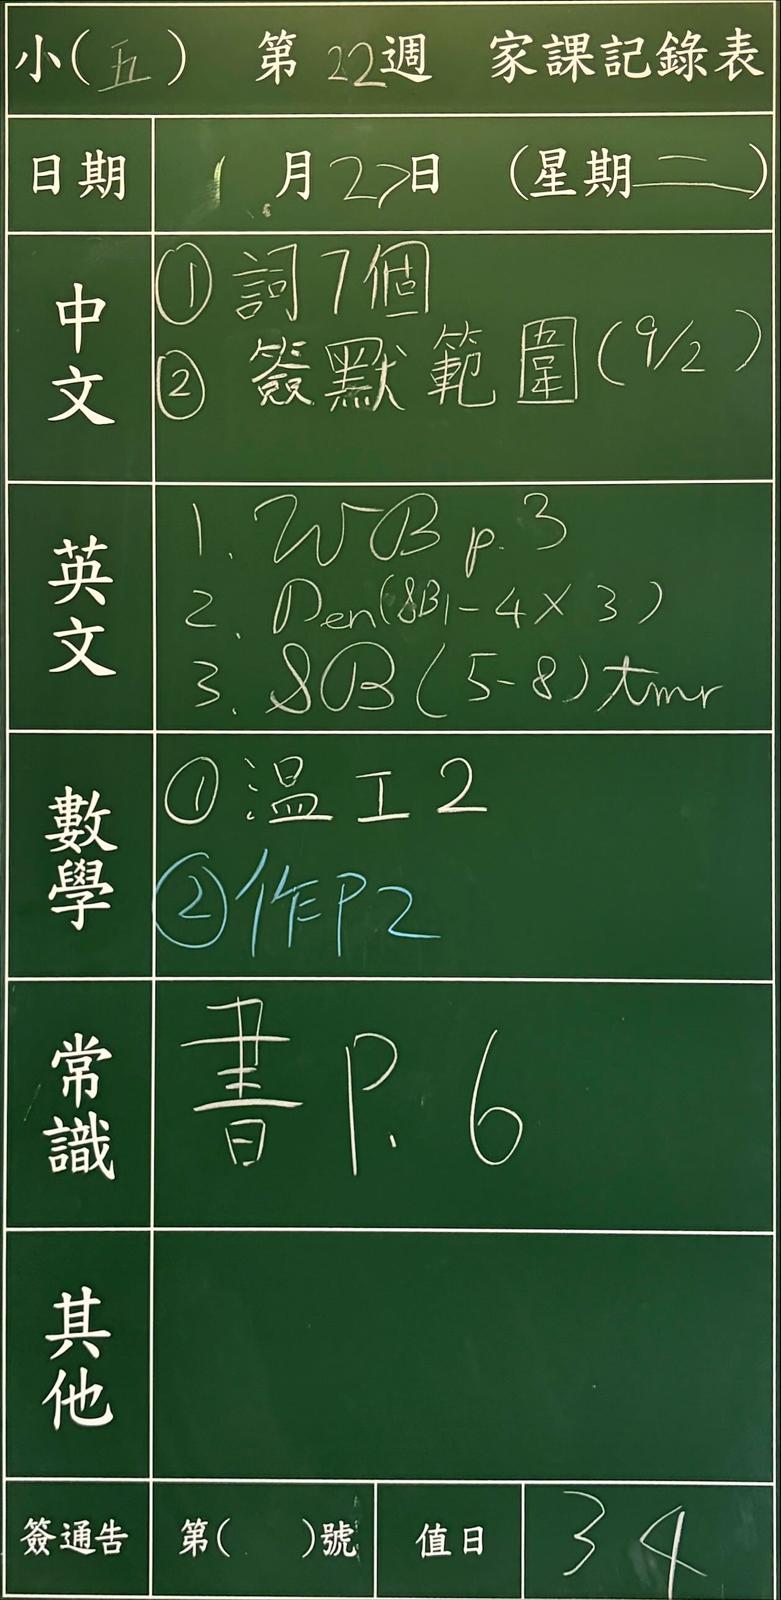 小(五) 第22週 家課記錄表
日期 1月27日 (星期二)
中文
① 詞7個
② 簽默範圍(9/2)
英文
1. WB p.3
2. Pen(SB1-4×3)
3. SB(5-8)tmr
數學
①溫工2
②作P2
常識
書P.6
其他
簽通告 第( )號 值日 34